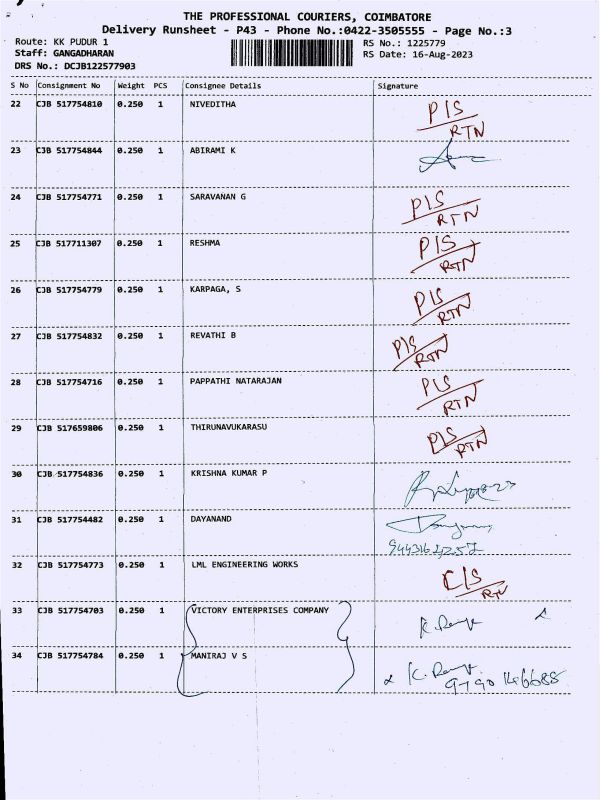 THE PROFESSIONAL COURIERS, COIMBATORE
Delivery Runsheet - P43 - Phone No.:0422-3505555 - Page No.:3
Route: KK PUDUR 1 RS No.: 1225779
Staff: GANGADHARAN RS Date: 16-Aug-2023
DRS No.: DCJB122577903
S No Consignment No Weight PCS Consignee Details Signature
22 CJB 517754810 0.250 1 NIVEDITHA P/S
RTN
23 CJB 517754844 0.250 1 ABIRAMI K
24 CJB 517754771 0.250 1 SARAVANAN G P/S
RTN
25 CJB 517711307 0.250 1 RESHMA P/S
RTN
26 CJB 517754779 0.250 1 KARPAGA, S P/S
RTN
27 CJB 517754832 0.250 1 REVATHI B P/S
RTN
28 CJB 517754716 0.250 1 PAPPATHI NATARAJAN P/S
RTN
29 CJB 517659806 0.250 1 THIRUNAVUKARASU P/S
RTN
30 CJB 517754836 0.250 1 KRISHNA KUMAR P
31 CJB 517754482 0.250 1 DAYANAND
32 CJB 517754773 0.250 1 LML ENGINEERING WORKS C/S
RTN
33 CJB 517754703 0.250 1 VICTORY ENTERPRISES COMPANY
34 CJB 517754784 0.250 1 MANIRAJ V S